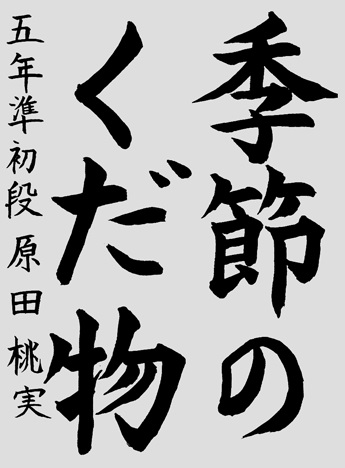 季節の
くだ物
五年準初段原田桃実